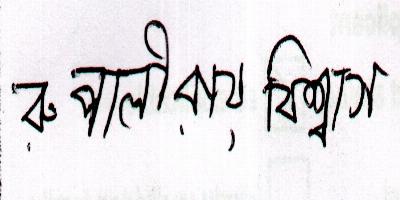 রুপালী রায় বিশ্বাস